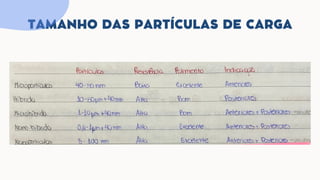 TAMANHO DAS PARTÍCULAS DE CARGA
Partículas Resistência Polimento Indicação
Microparticulas 40-70nm Baixa Excelente Anteriores
Híbrida 10-50µm+40nm Alta Bom Posteriores
Microhíbrida 1-10µm+40nm Alta Bom Anteriores e Posteriores
Nano híbrida µm+40nm Alta Excelente Anteriores e Posteriores
Nanoparticulas 5-100nm Alta Excelente Anteriores e Posteriores